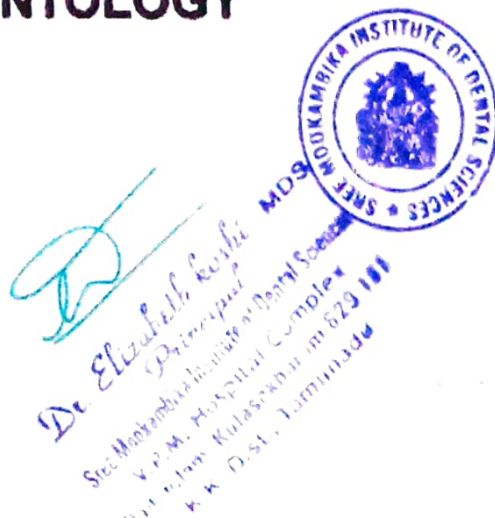 NTOLOGY
SREE MOOKAMBIKA INSTITUTE OF DENTAL SCIENCES
Dr. Elizabeth Koshi MDS
Principal
Sree Mookambika Institute of Dental Sciences
V.P.M. Hospital Complex
Kulasekharam 629 161
K.K. DIST., Tamilnadu